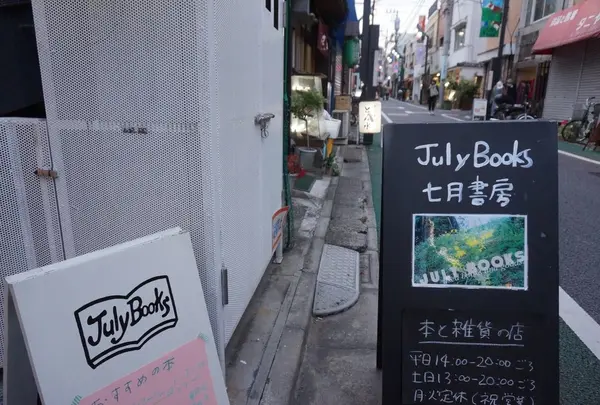 July Books
七月書房
JULY BOOKS
本と雑貨の店
平日14:00-20:00ごろ
土日13:00-20:00ごろ
月火定休(祝営業)
July Books
おすすめの本